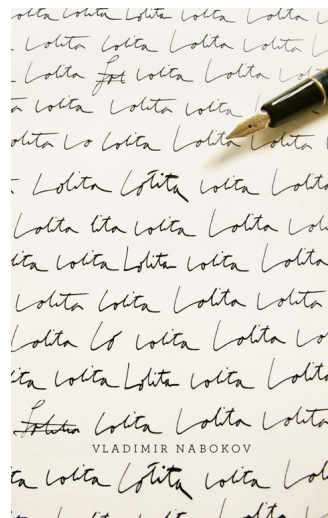 Lolita Lolita Lolita Lolita
Lolita Lolita Lolita Lolita
Lolita Lot Lolita Lolita Lolita
Lolita Lolita Lolita
Lolita Lo Lolita Lolita Lolita
Lolita Lolita Lolita
Lolita lita Lolita Lolita
Lolita Lolita Lolita
Lolita Lolita Lolita Lolita
Lolita Lo Lolita Lolita
Lolita Lolita Lolita
Lolita Lolita Lolita Lolita
VLADIMIR NABOKOV
Lolita Lolita Lolita